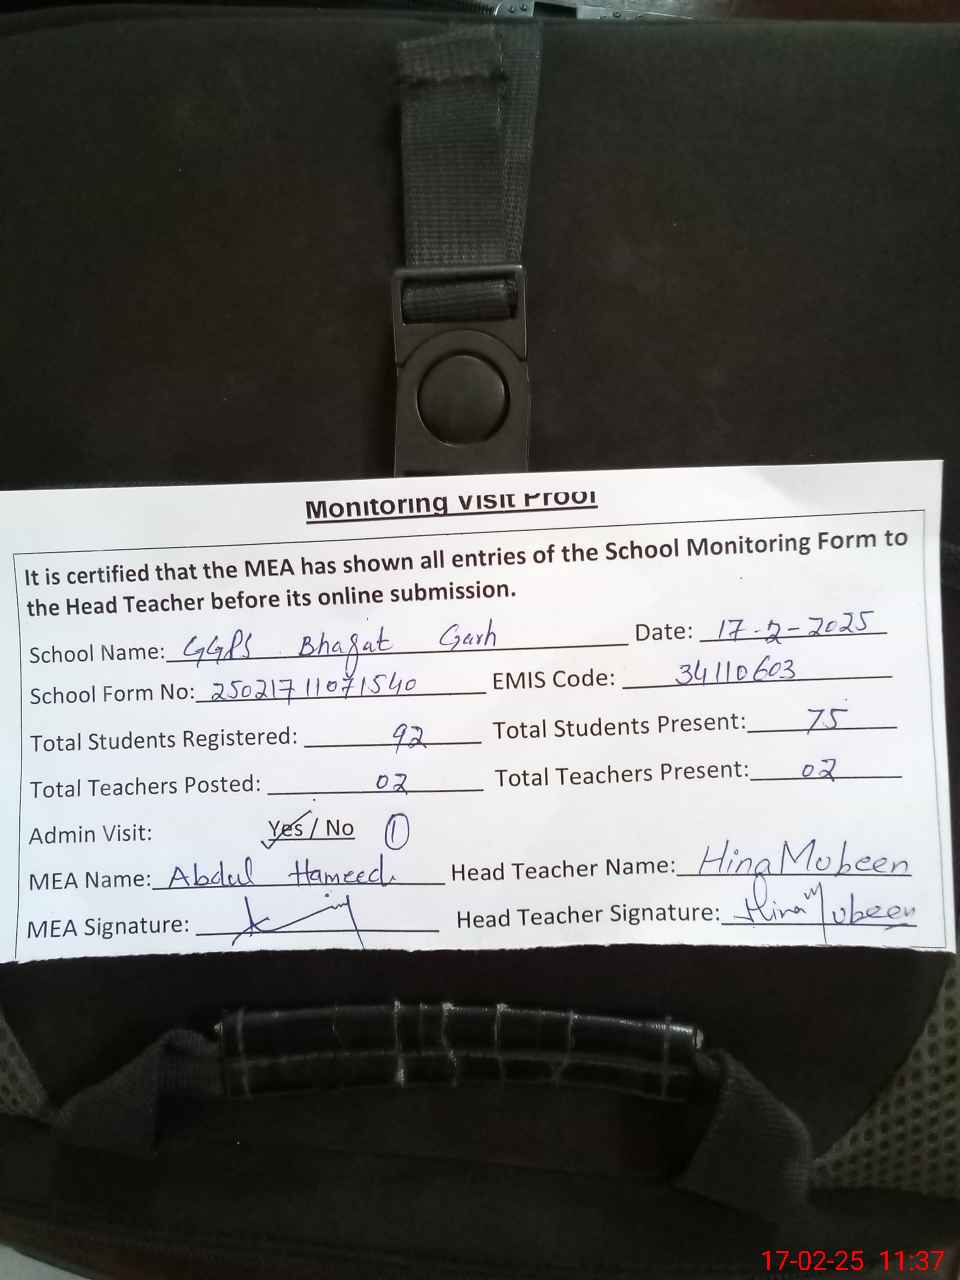 Monitoring Visit Proof
It is certified that the MEA has shown all entries of the School Monitoring Form to
the Head Teacher before its online submission.
School Name: GGPS Bhagat Garh Date: 17-2-2025
School Form No: 25021711071540 EMIS Code: 34110603
Total Students Registered: 92 Total Students Present: 75
Total Teachers Posted: 02 Total Teachers Present: 02
Admin Visit: Yes / No 1
MEA Name: Abdul Hameed Head Teacher Name: Hina Mubeen
MEA Signature: Head Teacher Signature: Hina Mubeen
17-02-25 11:37